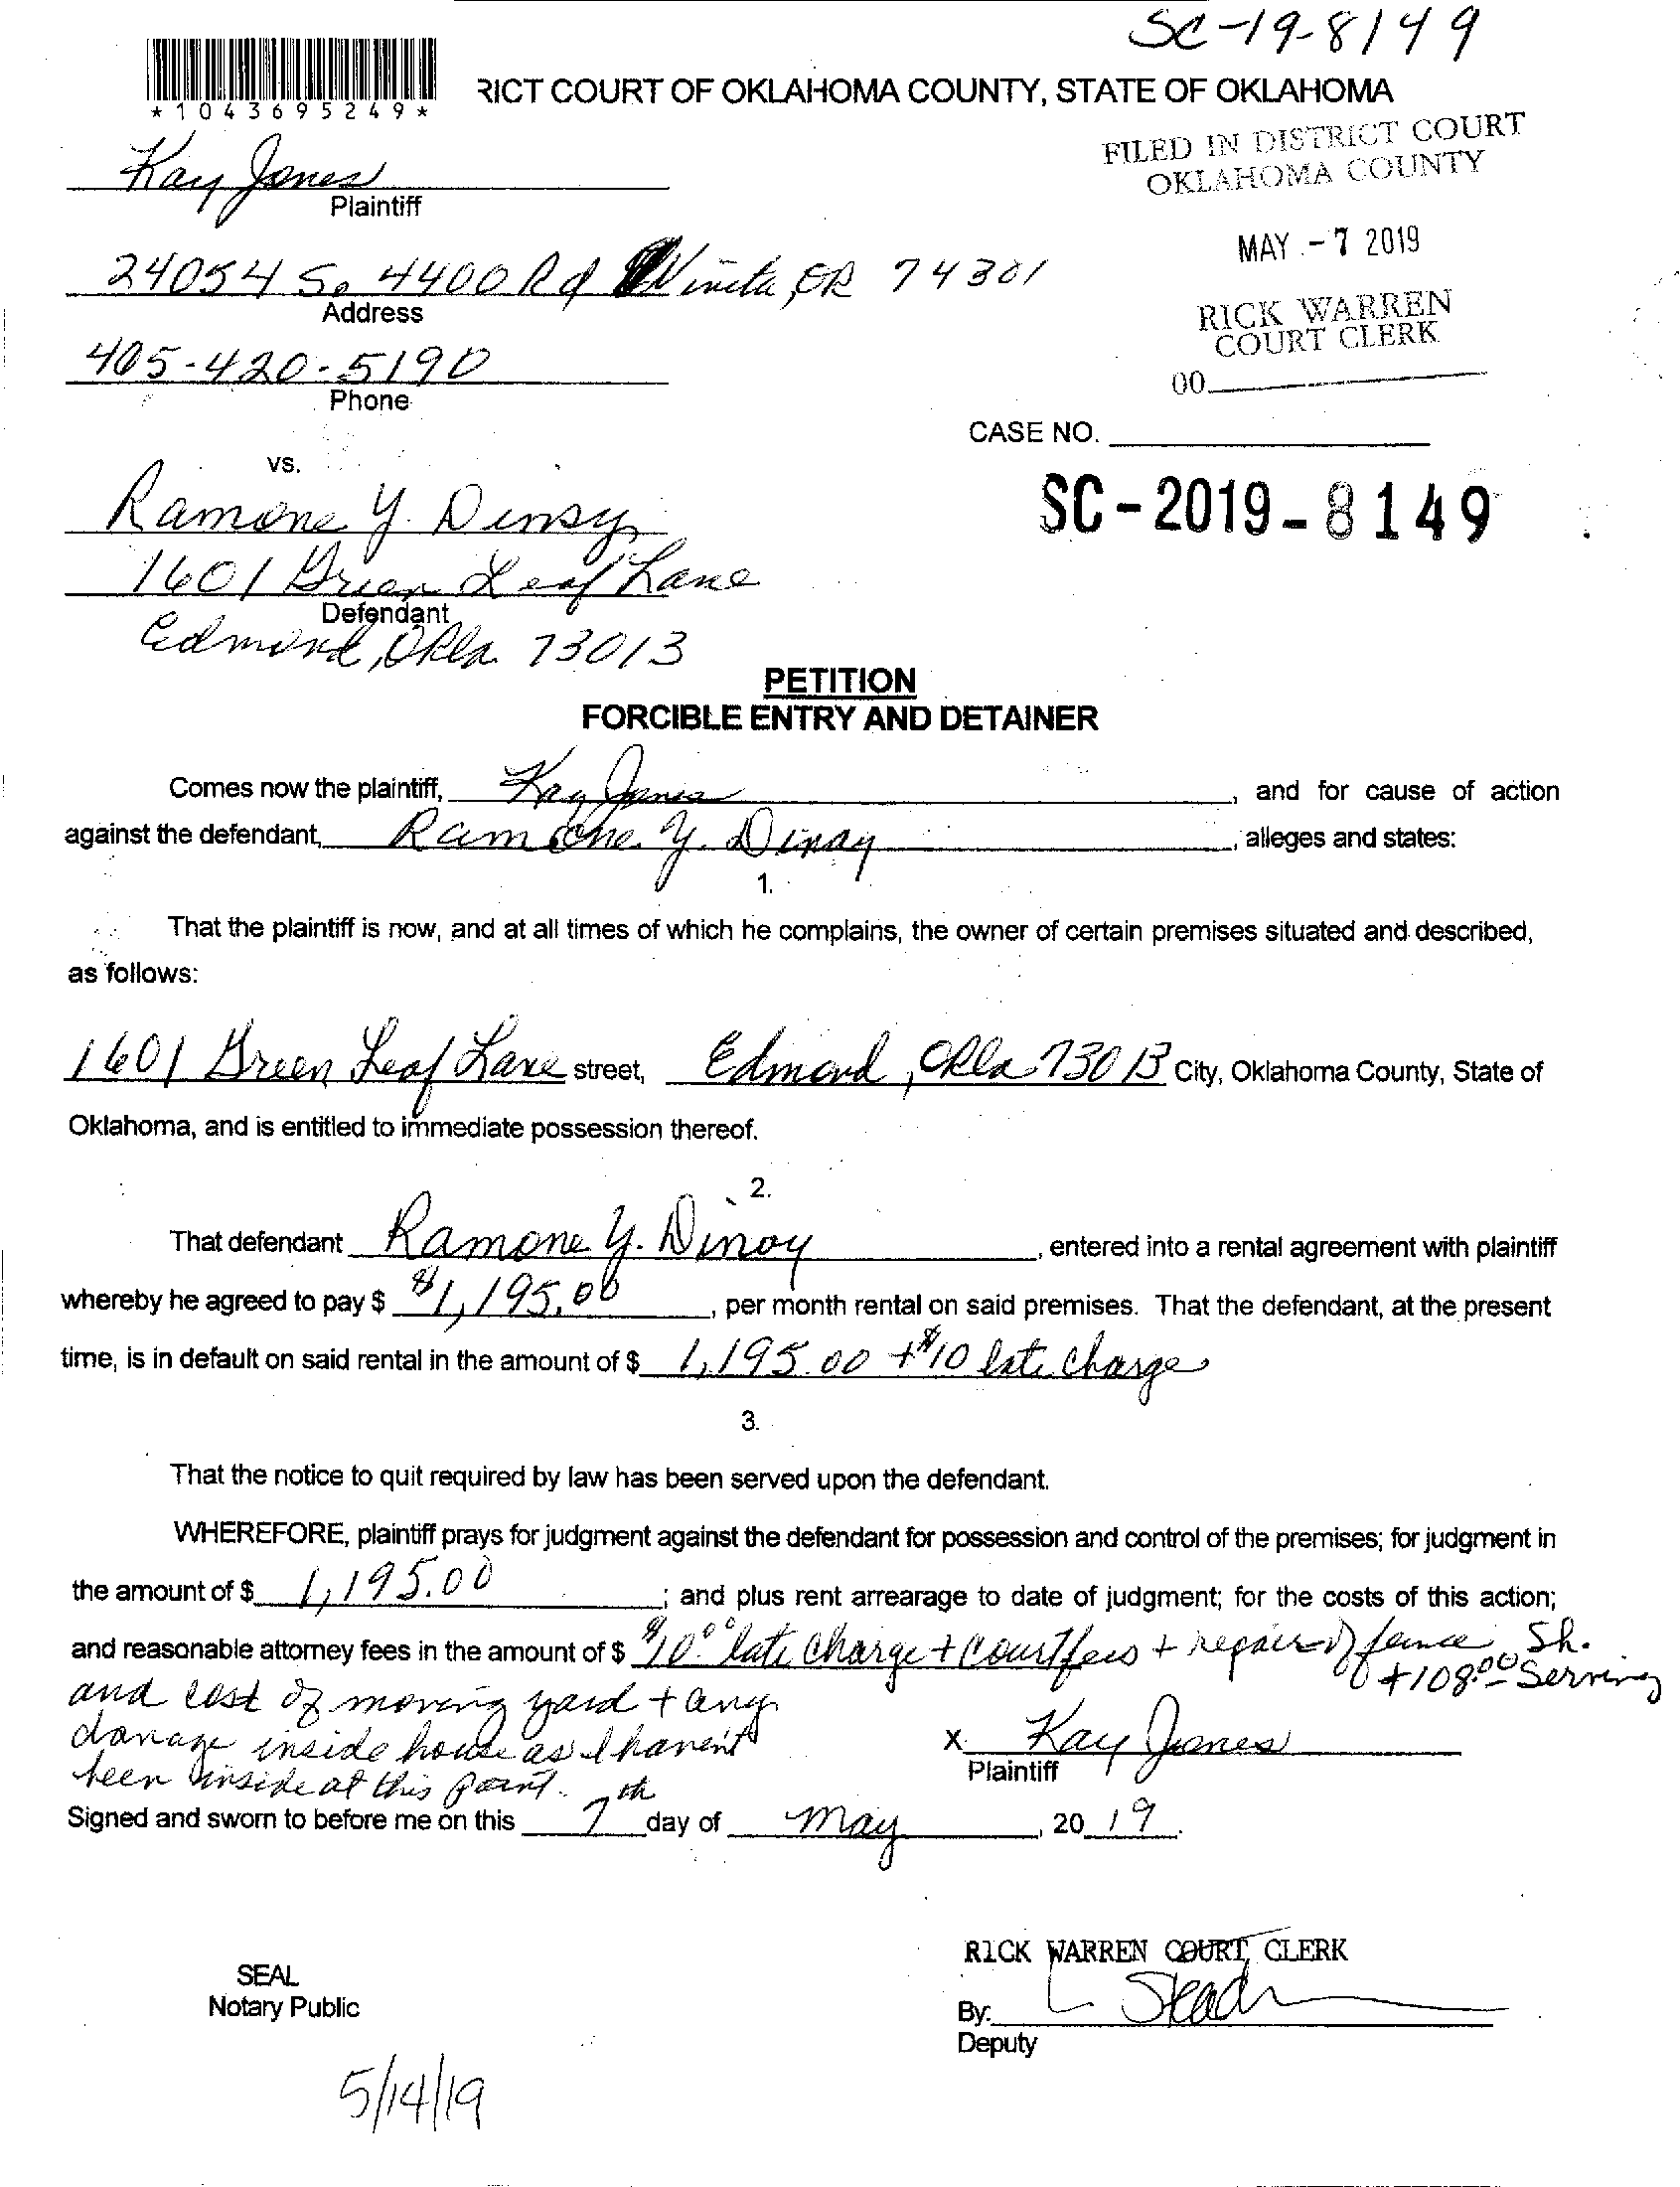 SC-19-8149
*1043695249*
RICT COURT OF OKLAHOMA COUNTY, STATE OF OKLAHOMA
FILED IN DISTRICT COURT
OKLAHOMA COUNTY
Kay Jones
Plaintiff
MAY - 7 2019
24054 So 4400 Rd Vinita, OK 74301
Address
RICK WARREN
COURT CLERK
405-420-5190
Phone
00
CASE NO.
vs.
SC-2019-8149
Ramone Y.
1601 Green Leaf Lane
Defendant
Edmond, Okla. 73013
PETITION
FORCIBLE ENTRY AND DETAINER
Comes now the plaintiff, Kay Jones, and for cause of action
against the defendant, Ramone Y., alleges and states:
1.
That the plaintiff is now, and at all times of which he complains, the owner of certain premises situated and described,
as follows:
1601 Green Leaf Lane street, Edmond, Okla 73013 City, Oklahoma County, State of
Oklahoma, and is entitled to immediate possession thereof.
2.
That defendant Ramone Y., entered into a rental agreement with plaintiff
whereby he agreed to pay $ $1,195.00, per month rental on said premises. That the defendant, at the present
time, is in default on said rental in the amount of $ 1,195.00 + $10 late charge
3.
That the notice to quit required by law has been served upon the defendant.
WHEREFORE, plaintiff prays for judgment against the defendant for possession and control of the premises; for judgment in
the amount of $ 1,195.00; and plus rent arrearage to date of judgment; for the costs of this action;
and reasonable attorney fees in the amount of $ $10.00 late charge + Court fees + repair of fence Sh.
+108.00 Serving
and cost of moving yard + any
damage inside house as I haven't
been inside at this point.
X Kay Jones
Plaintiff
Signed and sworn to before me on this 7th day of May, 2019.
RICK WARREN COURT CLERK
SEAL
Notary Public
By:
Deputy
5/14/19